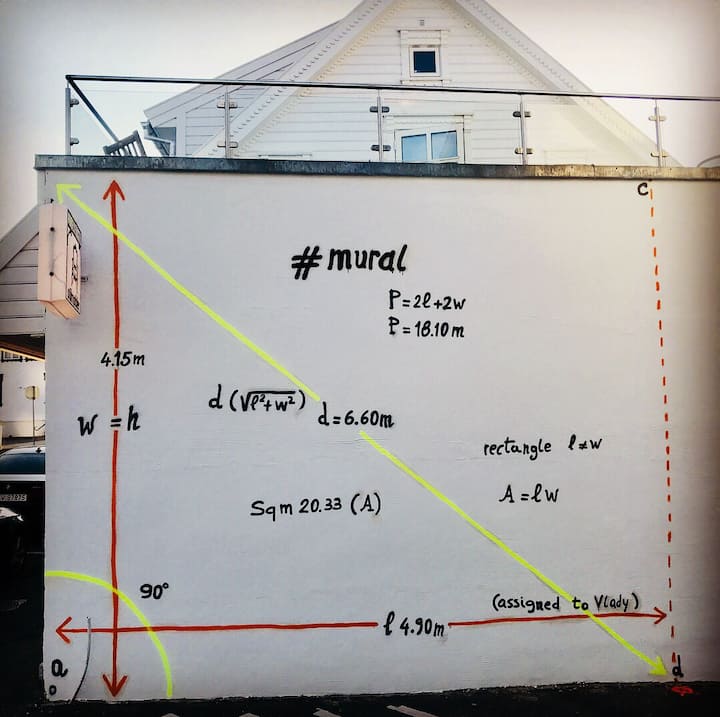 c
#mural
P=2ℓ+2w
P=18.10m
4.15m
d(√ℓ²+w²)
d=6.60m
w=h
rectangle ℓ≠w
A=ℓw
Sqm 20.33 (A)
90°
(assigned to Vlady)
ℓ 4.90m
a
d